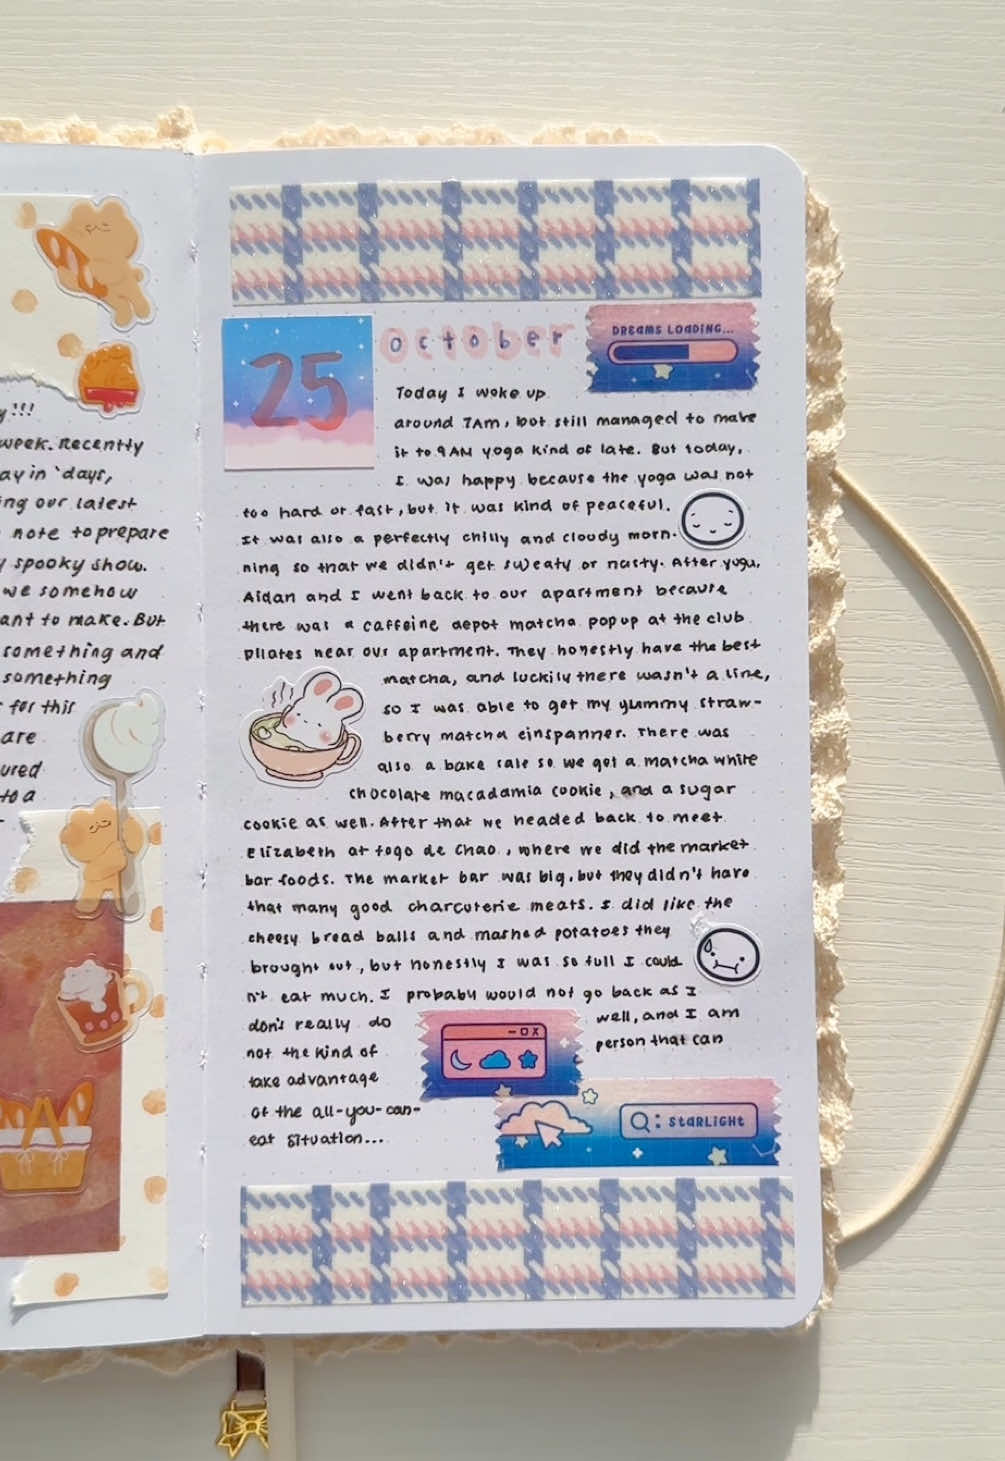 y!!!
week. Recently
ay in 'days,
ing our latest
note to prepare
y spooky show.
we somehow
ant to make. But
something and
something
for this
are
ured
to a
25
October
DREAMS LOADING...
Today I woke up
around 7AM, but still managed to make
it to 9AM yoga kind of late. But today,
I was happy because the yoga was not
too hard or fast, but it was kind of peaceful.
It was also a perfectly chilly and cloudy morn-
ning so that we didn't get sweaty or nasty. After yoga,
Aidan and I went back to our apartment because
there was a caffeine depot matcha popup at the club
pilates near our apartment. They honestly have the best
matcha, and luckily there wasn't a line,
so I was able to get my yummy straw-
berry matcha einspanner. There was
also a bake sale so we got a matcha white
chocolate macadamia cookie, and a sugar
cookie as well. After that we headed back to meet
Elizabeth at fogo de Chao, where we did the market
bar foods. The market bar was big, but they didn't have
that many good charcuterie meats. I did like the
cheesy bread balls and mashed potatoes they
brought out, but honestly I was so full I could
n't eat much. I probaby would not go back as I
don't really do well, and I am
not the kind of person that can
take advantage
of the all-you-can-
eat situation...
- □ X
: STARLIGHT